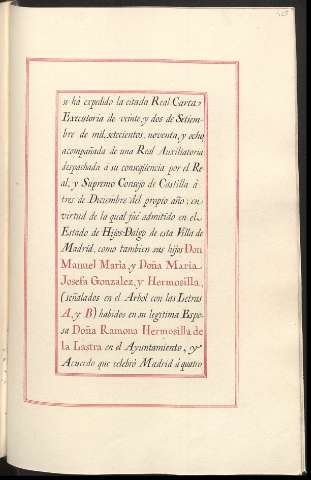 se há expedido la citada Real Carta
Executoria de veinte y dos de Setiem-
bre de mil, setecientos, noventa, y ocho,
acompañada de una Real Auxiliatoria
despachada a su conseqüencia por el Re
al, y Supremo Consejo de Castilla á
tres de Diciembre del propio año; en
virtud de la qual fué admitido en el
Estado de Hijos-Dalgo de esta Villa de
Madrid, como tambien sus hijos Don
Manuel Maria, y Doña Maria
Josefa Gonzalez, y Hermosilla,
(señalados en el Arbol con las Letras
A, y B) habidos en su legitima Espo-
sa Doña Ramona Hermosilla de
la Lastra en el Ayuntamiento, y
Acuerdo que celebró Madrid á quatro